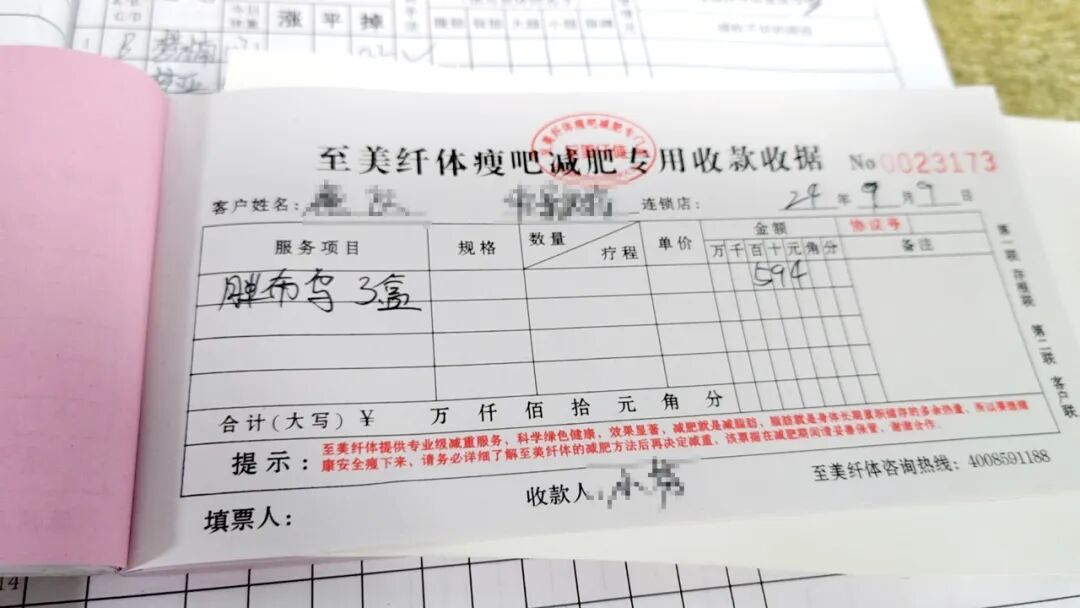 涨 平 掉
至美纤体瘦吧减肥专用收款收据 No 0023173
客户姓名： 连锁店： 24年9月9日
服务项目 规格 数量 疗程 单价 金额 协议号
万千百十元角分 备注
3盒 594
合计(大写)￥ 万 仟 佰 拾 元 角 分
提示：
至美纤体提供专业级减重服务，科学绿色健康，效果显著，减肥就是减脂肪，脂肪就是身体长期蓄积储存的多余热量，所以要想健
康安全瘦下来，请务必详细了解至美纤体的减肥方法后再决定减重，该票据在减肥期间请妥善保管，谢谢合作。
收款人
至美纤体咨询热线：4008591188
填票人：
第一联 存根联 第二联 客户联
14